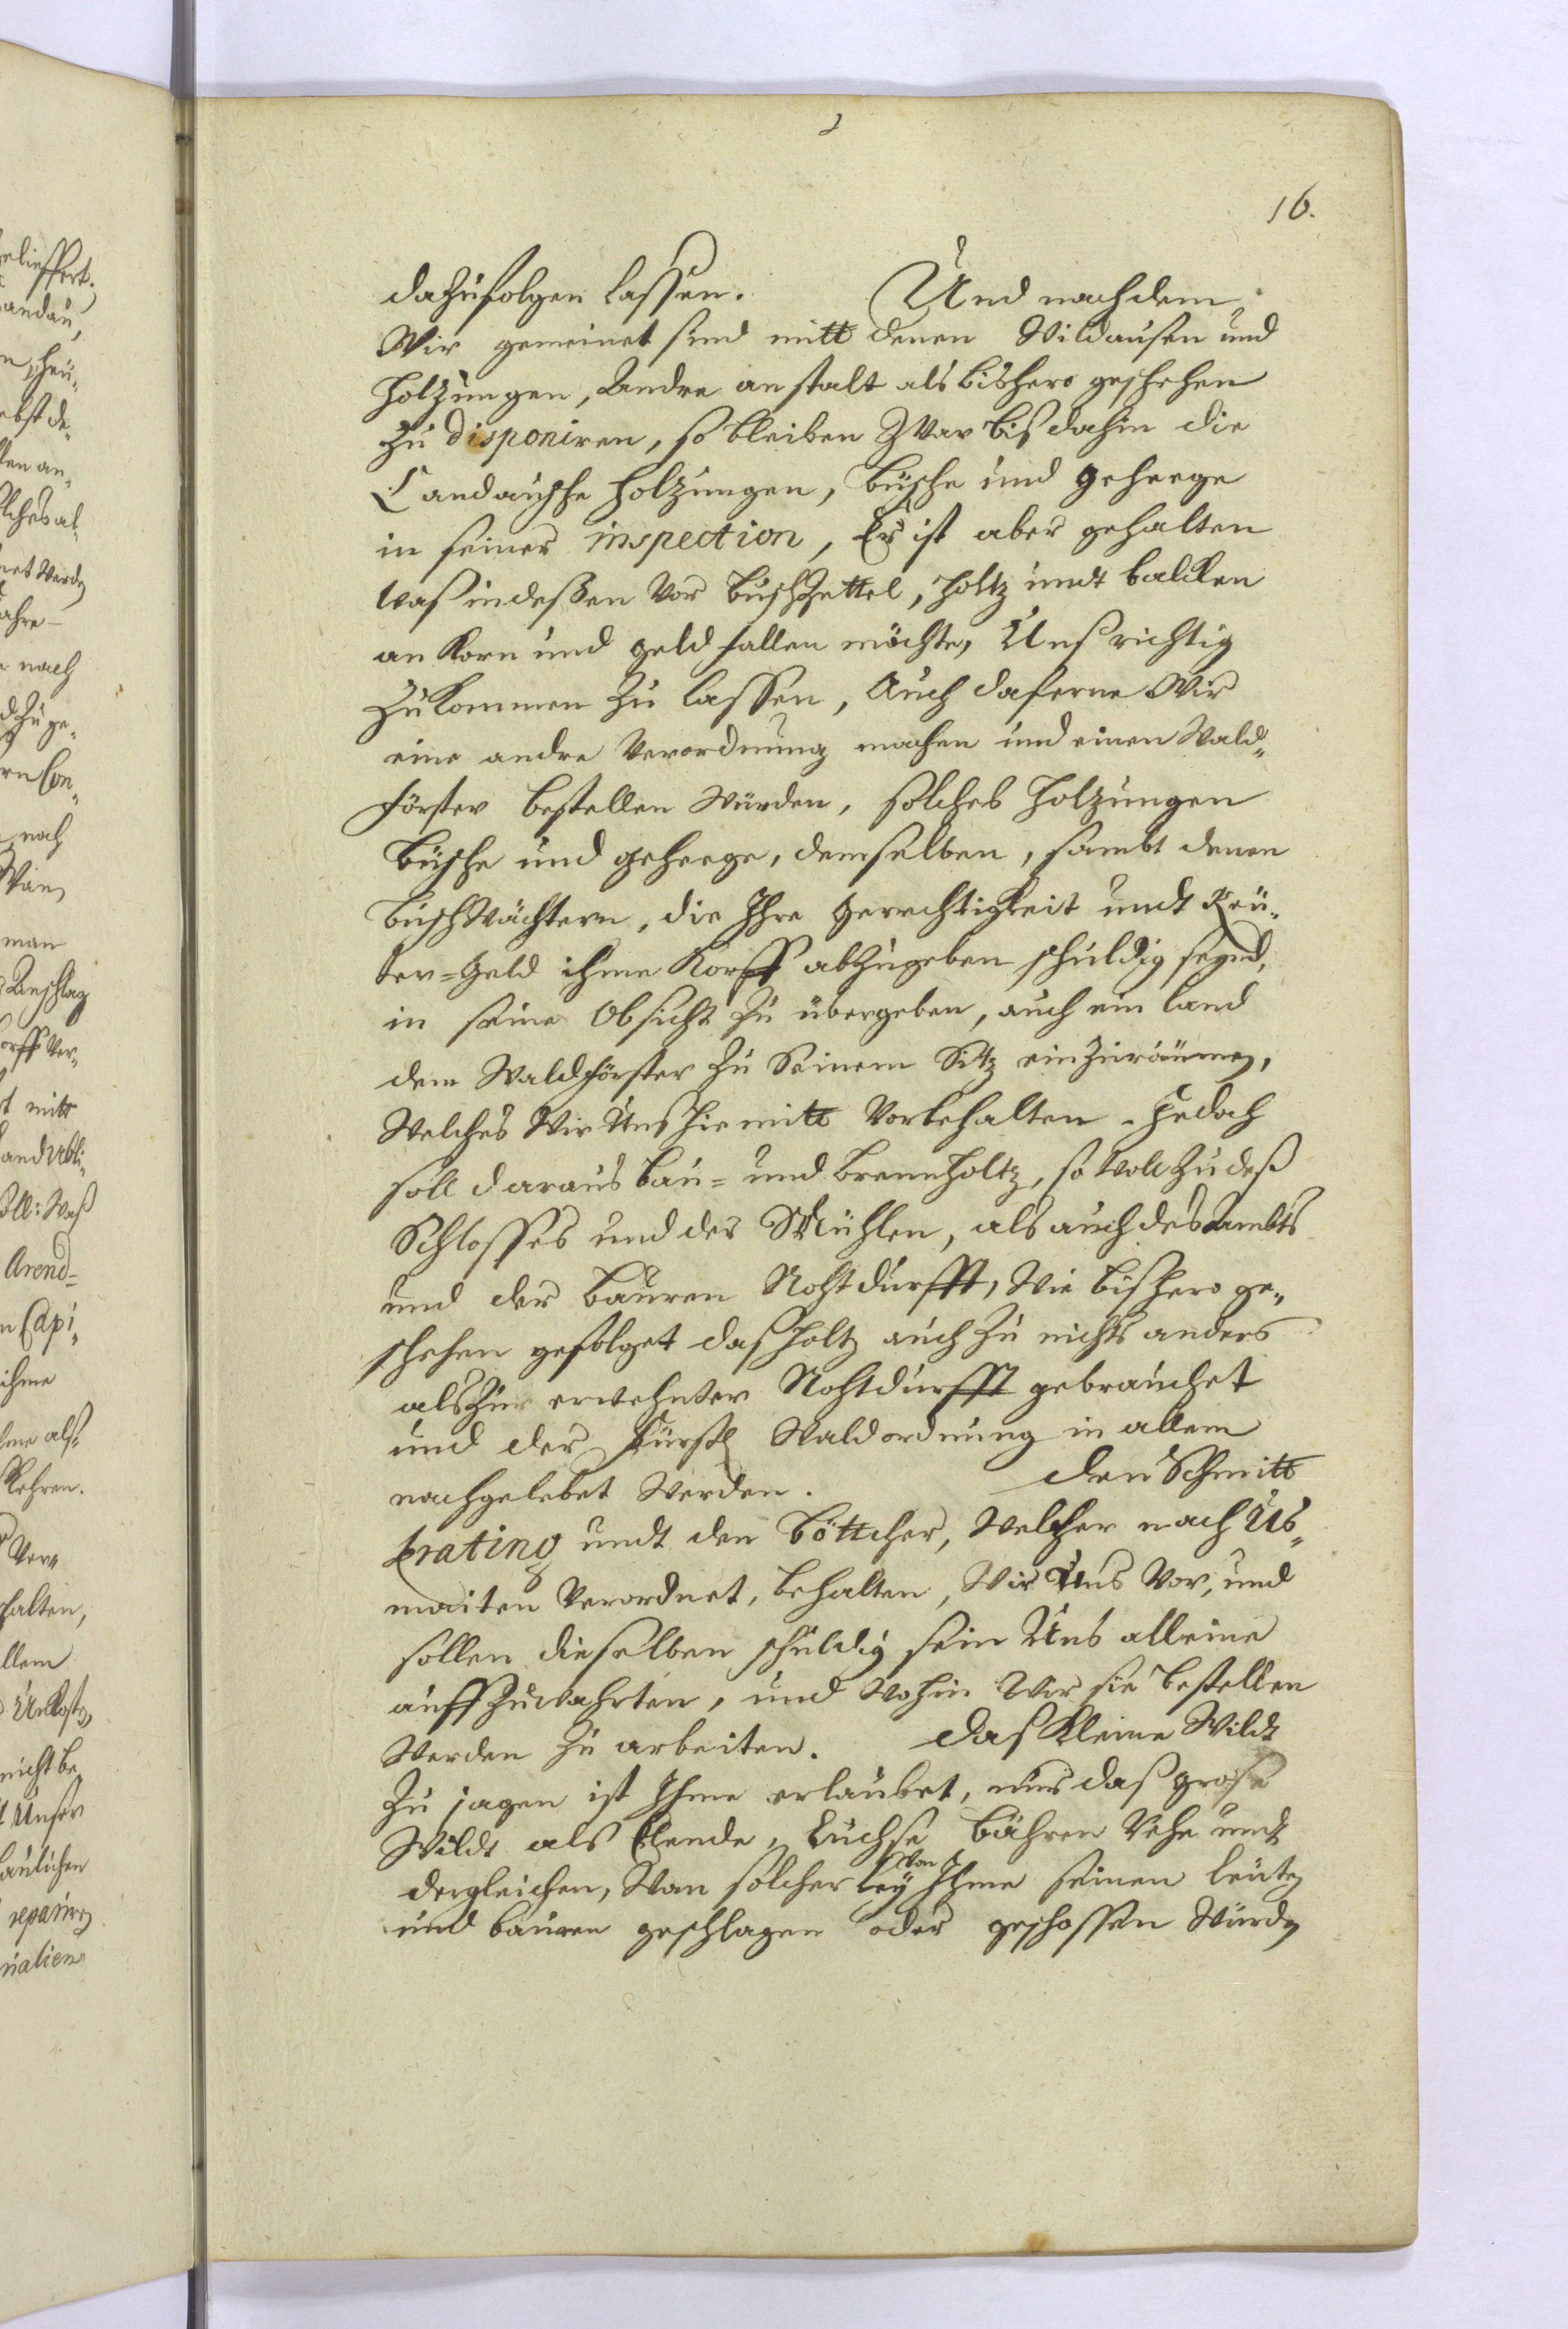 2
16.
dazu folgen lassen. Und nachdem
Wir gemeinet sind mitt denen Wildnusen und
Holzungen, Andre anstalt als bishero geschehen
zu disponiren, so bleiben zwar biß dahin die
Candausche Holzungen, Büsche und geheege
in seiner inspection, Er ist aber gehalten
waß indeßen vor Buschzettel, Holtz undt balcken
an Korn und geld fallen möchte, Unß richtig
zukommen zu lassen, Auch daferne Wir
eine andre Verordnung machen und einen Wald„
förster bestellen würden, solches Holzungen
Büsche und geheege, demselben, sambt denen
Buschwächtern, die Ihre Gerechtigkeit undt Reü„
ter=Geld ihme Korff abzugeben schuldig seynd,
in seine Obsicht zu übergeben, auch ein land
dem Waldförster zu Seinem Sitz einzuräumen,
Welches Wir Uns hiemitt Vorbehalten. Jedoch
soll daraus bau= und brennholtz, so woll zu deß
Schlosses und der Mühlen, als auch des Ambts
und der bauren Nohtdurfft, wie bishero ge„
schehen gefolget daß Holtz auch zu nichts anders
als zur erwehnter Nohtdurfft gebrauchet
und der Fürstl Waldordnung in allem
nachgelebet werden. den Schmitt
brating undt den böttcher, welcher nach Us„
maiten verordnet, behalten, Wir Uns vor, und
sollen dieselben schuldig sein Uns alleine
auffzuwahrten, und wohin Wir sie bestellen
werden zu arbeiten. daß kleine Wildt
zu jagen ist Ihme erlaubet, nur daß große
Wildt als Elende, Luchse bähren Rehe undt
von
dergleichen, wan solcherley Ihme seinen leuten
und bauren geschlagen oder geschossen würden
geliefert.
andau,
ebst de„
len an„
nach
ern Con„
noch
man
Anschlag
orff ver„
mitt
Arend=
n Capi„
ihme
hme alß
kehren.
ver„
halten,
llem
Unkosten
nicht be„
Unser
baulichen
repariren
rialien